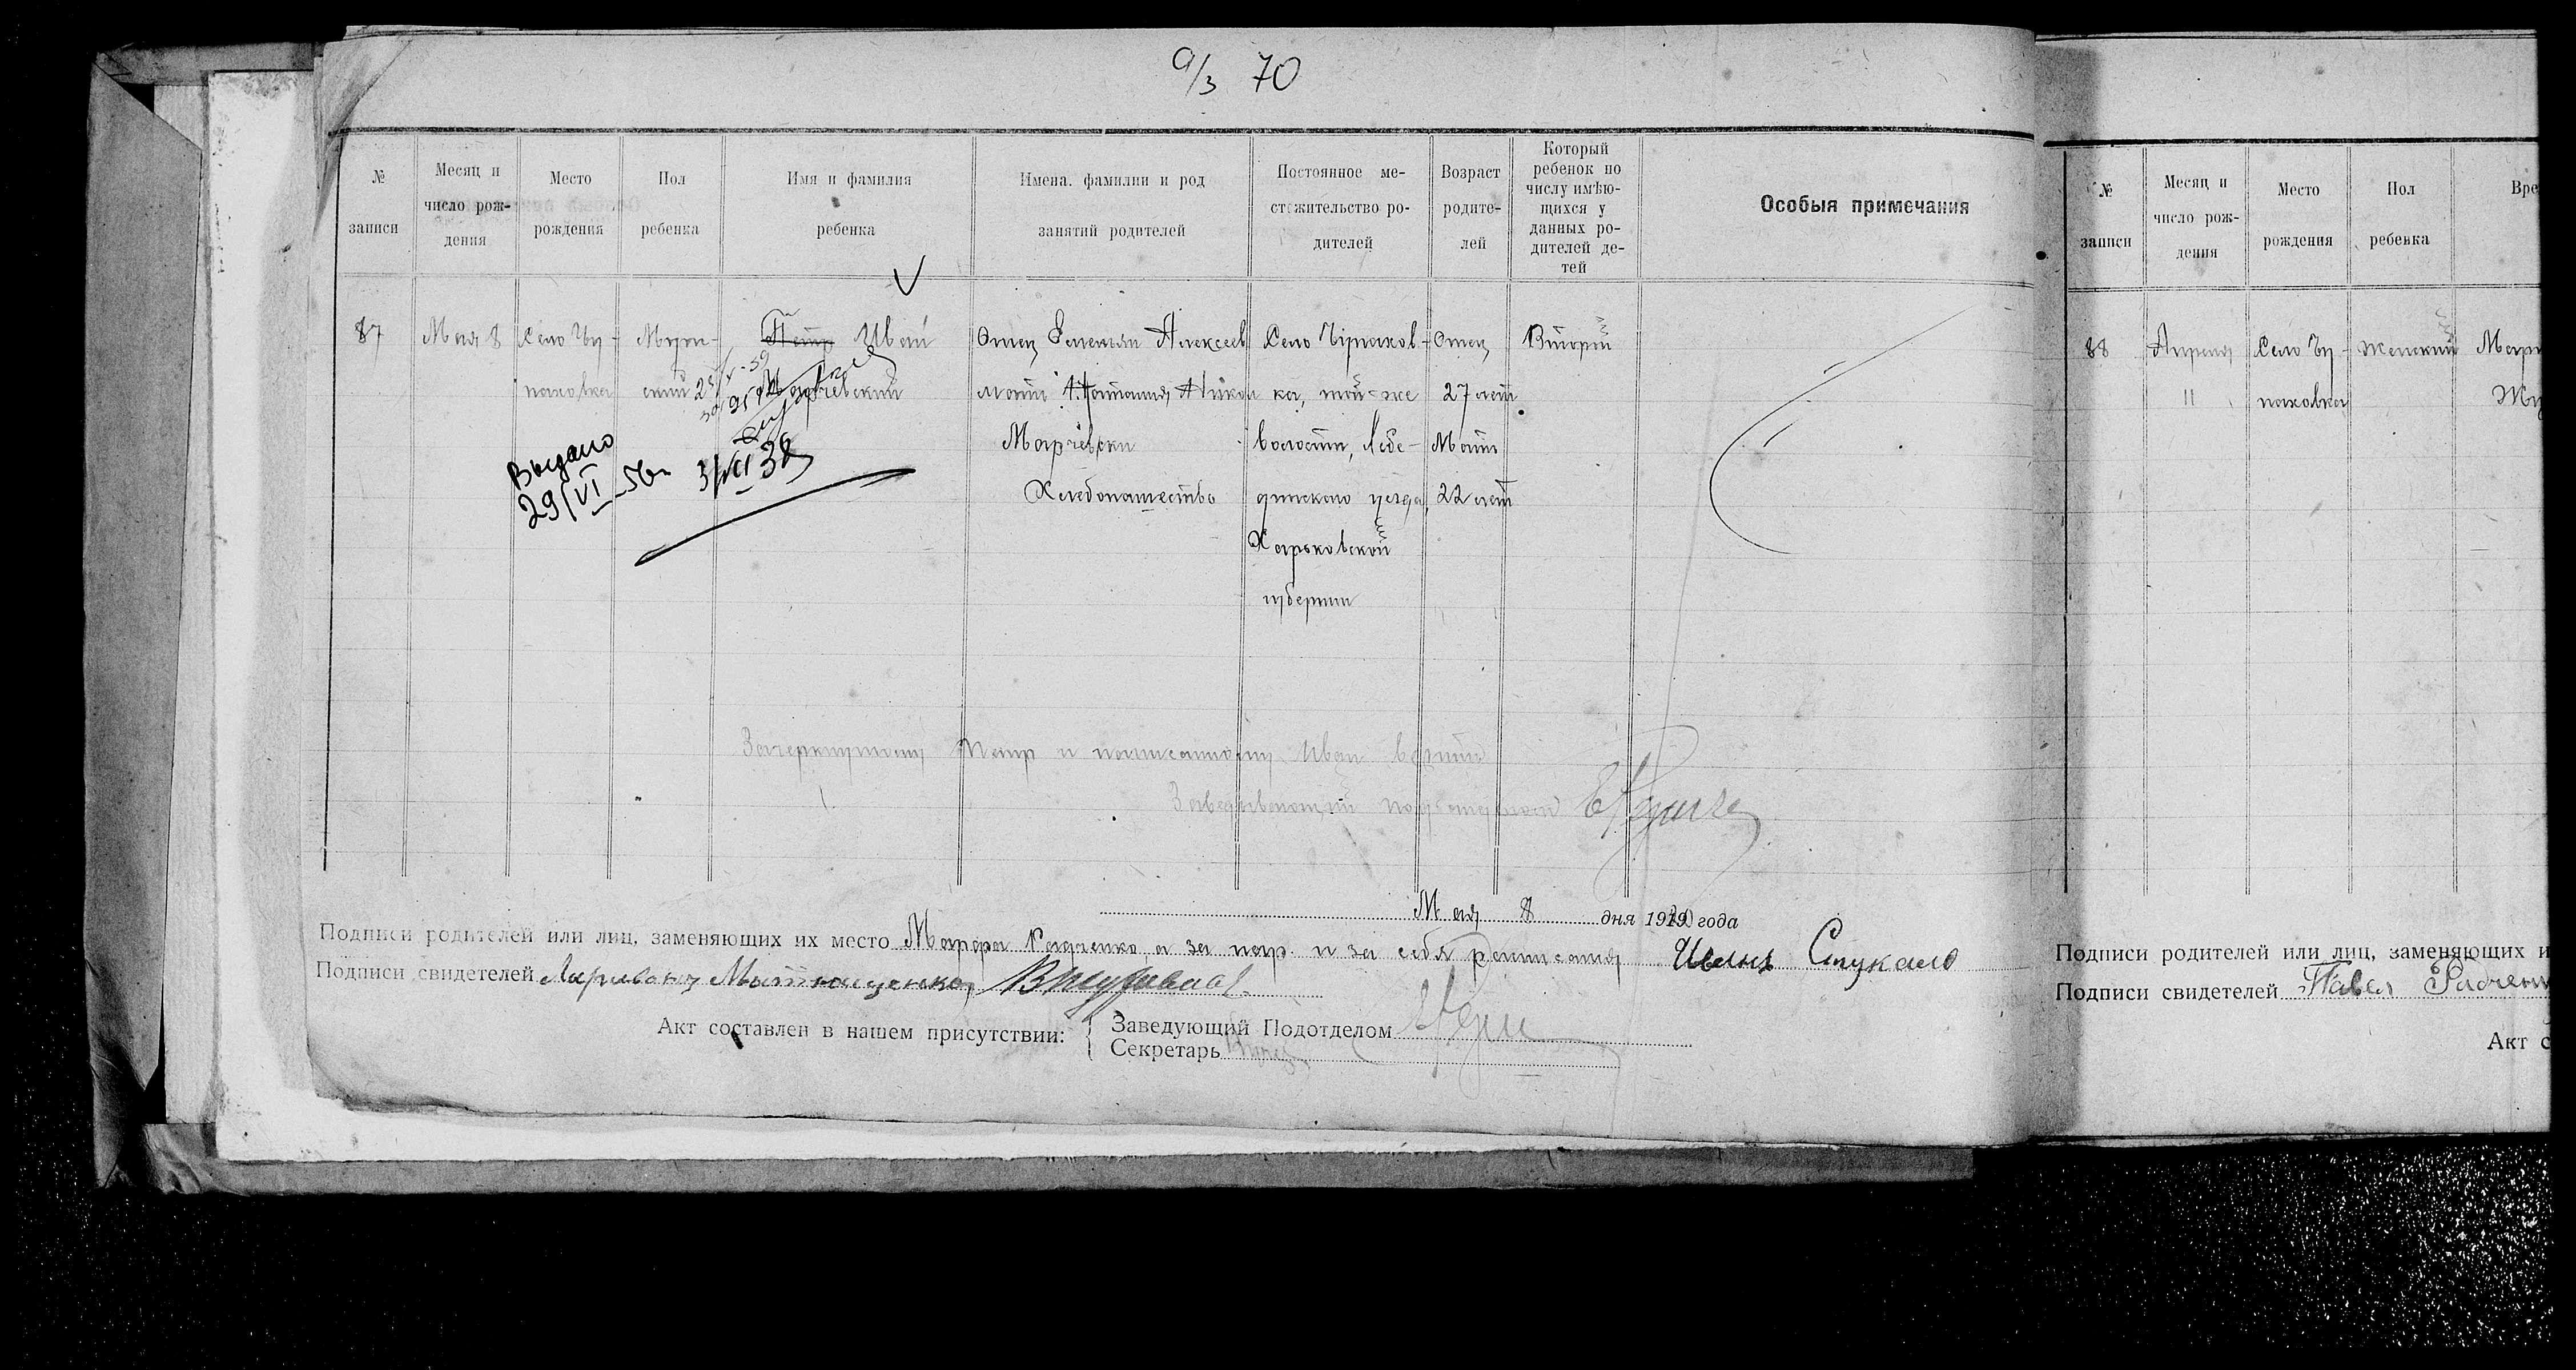 9/3 70
№ записи
Месяц и число рождения
Место рождения
Пол ребенка
Имя и фамилия ребенка
Имена, фамилии и род занятий родителей
Постоянное местожительство родителей
Возраст родителей
Который ребенок по числу имѣющихся у данных родителей детей
Особыя примечания
87
Мая 8
Село Чу-
паховка
Муж-
ский
Петр Иван
Марчевский
Отец Емельян Алексеев
мать Наталия Никол
Марчевски
Хлебопашество
Село Чупахов-
ка, той же
волости, Лебе-
динского уезда
Харьковской
губернии
Отец
27 лет
Мать
22 лет
Второй
Выдано
29/VI-56г
Зачеркнутому Петр и написанному Иван верить
Заведывающий подотделом
Мая 8 дня 1920 года
Подписи родителей или лиц, заменяющих их место Марфа Радченко, а за нар. и за себя росписался Иванъ Стукало
Подписи свидетелей
Акт составлен в нашем присутствии:
Заведующий Подотделом
Секретарь
№ записи
Месяц и число рождения
Место рождения
Пол ребенка
Вре
88
Апреля
11
Село Чу-
паховка
Женский
Мари
Подписи родителей или лиц, заменяющих и
Подписи свидетелей Павел
Акт с